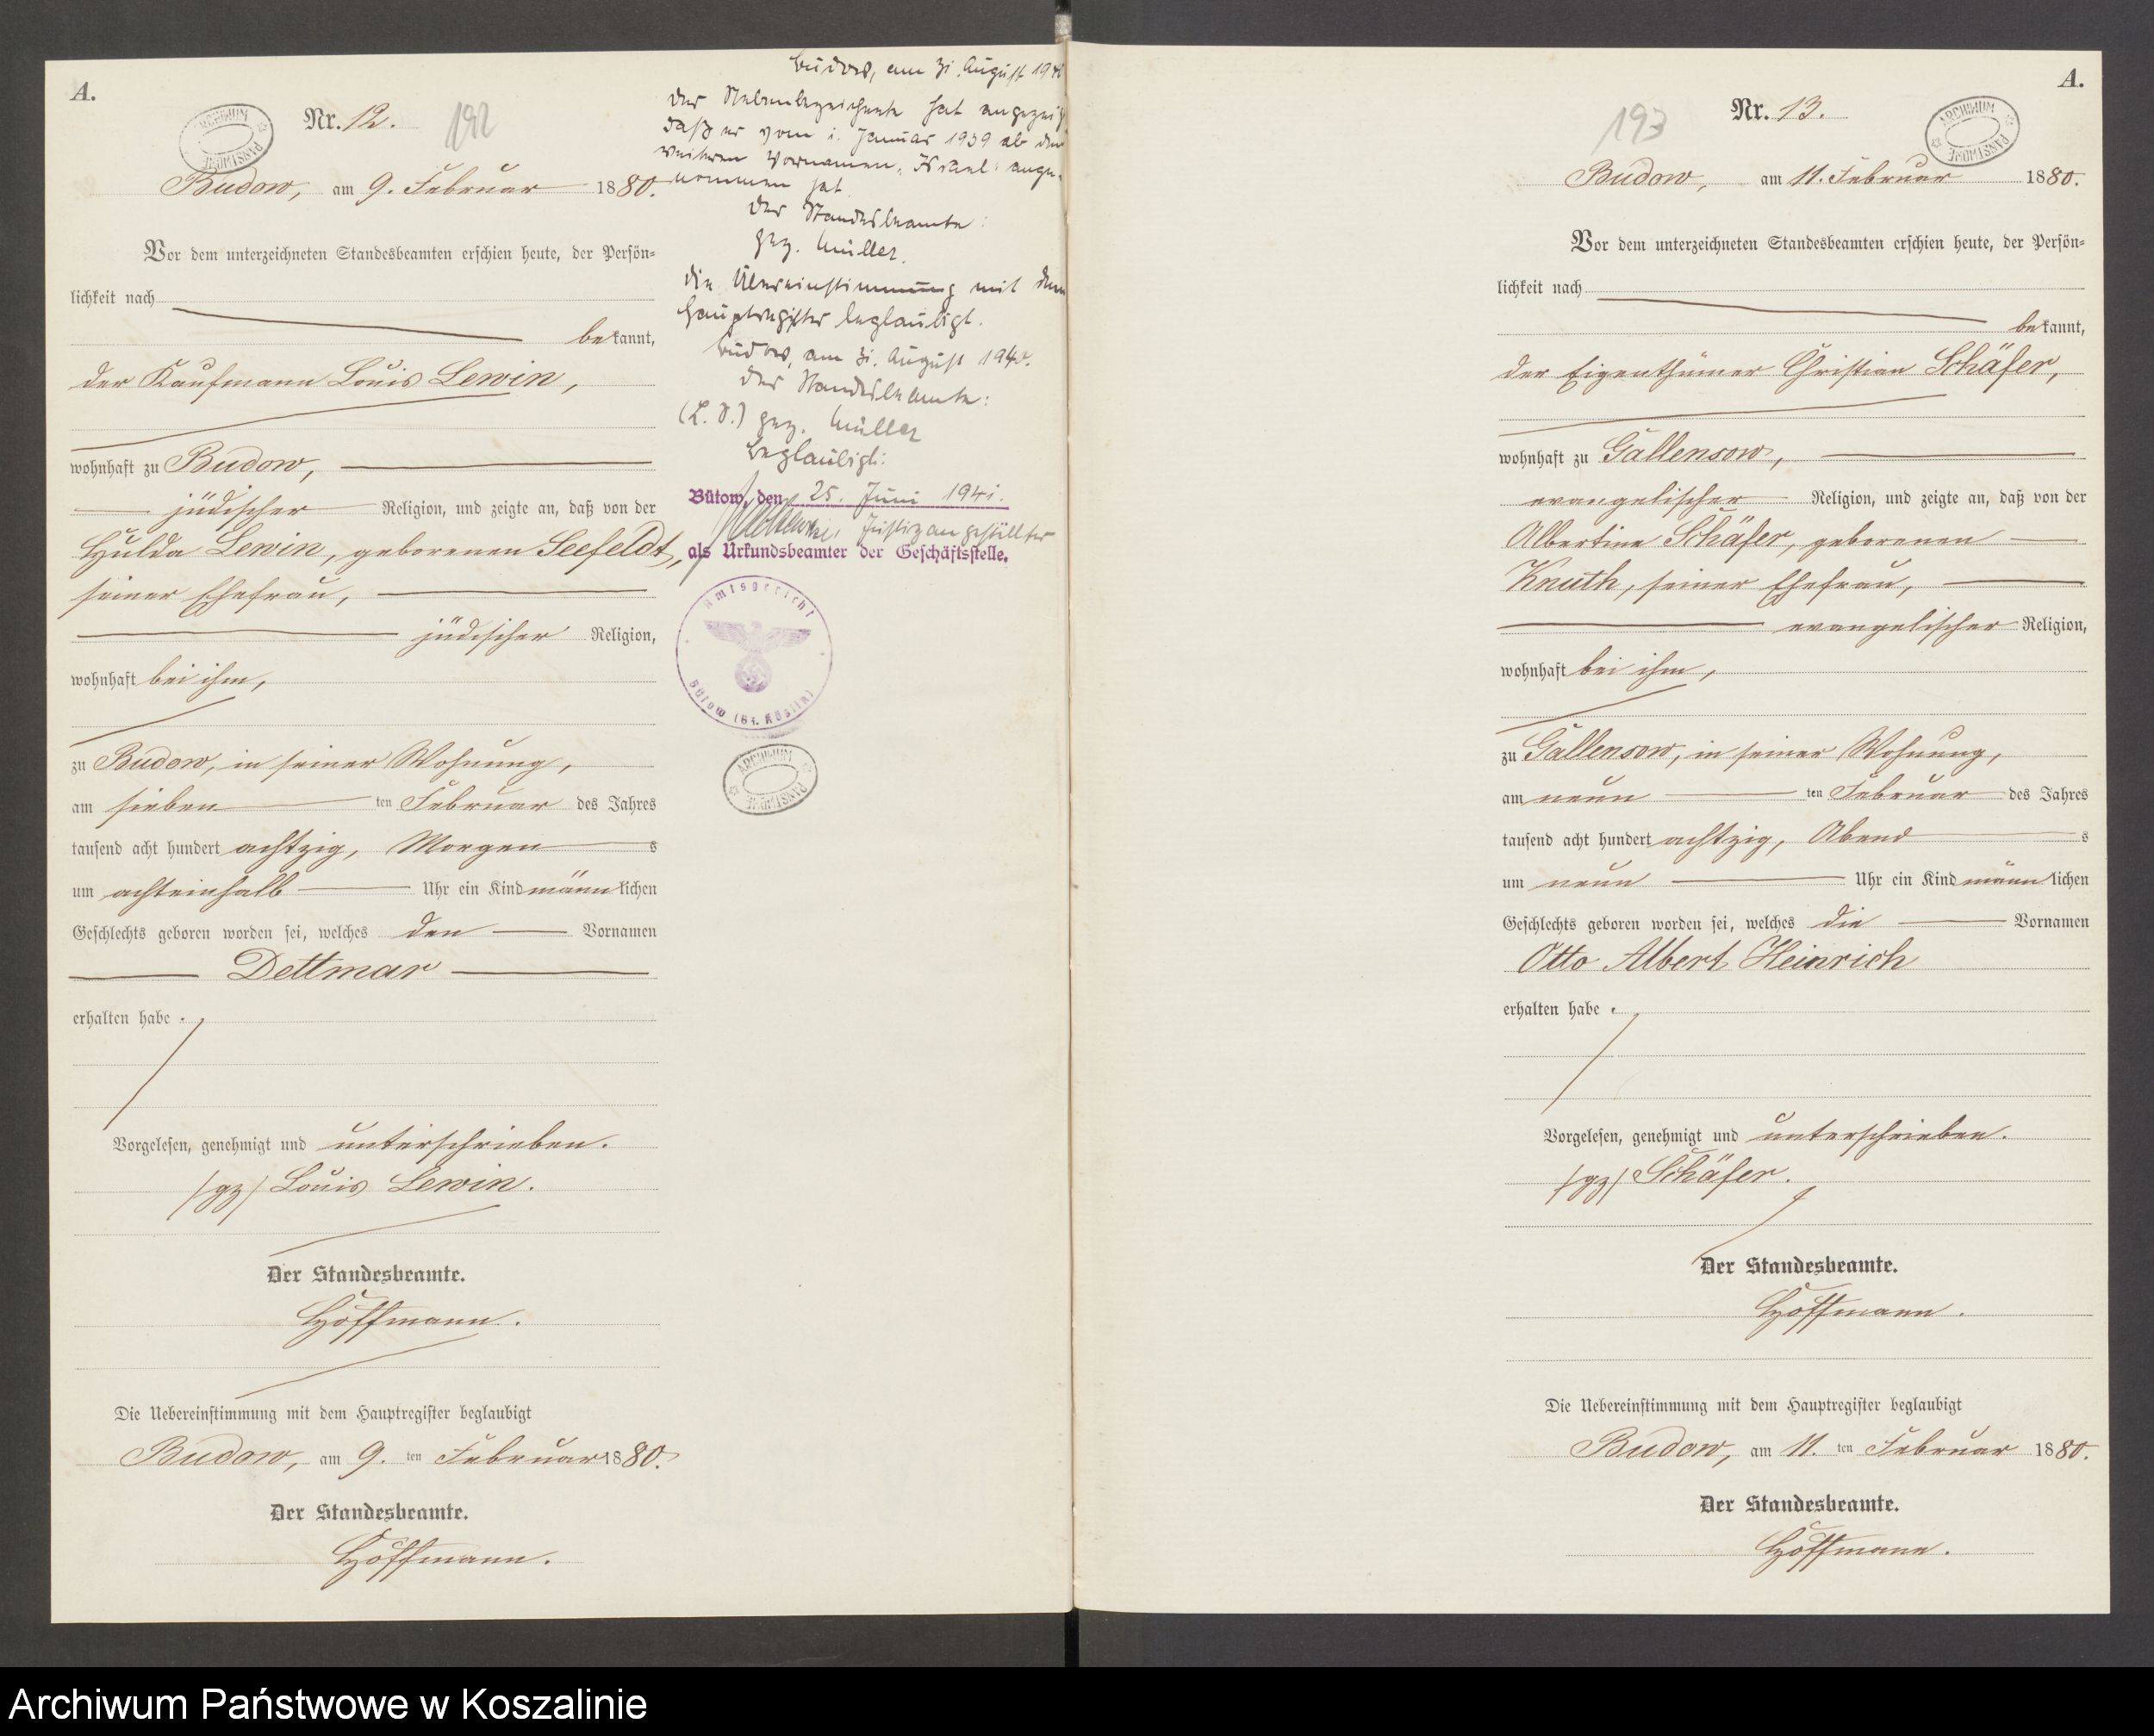 A.
Nr. 12.
192
ARCHIWUM PAŃSTWOWE
Budow, am 9. Februar 1880.
Vor dem unterzeichneten Standesbeamten erschien heute, der Persön=
lichkeit nach
bekannt,
der Kaufmann Louis Lewin,
wohnhaft zu Budow,
jüdischer Religion, und zeigte an, daß von der
Hulda Lewin, geborenen Seefeldt,
seiner Ehefrau,
jüdischer Religion,
wohnhaft bei ihm,
zu Budow, in seiner Wohnung,
am sieben ten Februar des Jahres
tausend acht hundert achtzig, Morgen s
um achteinhalb Uhr ein Kind männlichen
Geschlechts geboren worden sei, welches den Vornamen
Dettmar
erhalten habe.
Vorgelesen, genehmigt und unterschrieben.
/gz/ Louis Lewin.
Der Standesbeamte.
Hoffmann.
Die Uebereinstimmung mit dem Hauptregister beglaubigt
Budow, am 9. ten Februar 1880.
Der Standesbeamte.
Hoffmann.
Budow, am 31. August 1940
Der Nebenbezeichnete hat angezeigt
daß er vom 1. Januar 1939 ab den
weiteren Vornamen „Israel" ange-
nommen hat
Der Standesbeamte:
gez. Müller.
Die Übereinstimmung mit dem
Hauptregister beglaubigt.
Budow, am 31. August 1940.
Der Standesbeamte:
(L. S.) gez. Müller
Beglaubigt:
Bütow, den 25. Juni 1941.
Justizangestellter
als Urkundsbeamter der Geschäftsstelle.
Amtsgericht
Bütow (Bz. Köslin)
ARCHIWUM PAŃSTWOWE
A.
Nr. 13.
193
ARCHIWUM PAŃSTWOWE
Budow, am 11. Februar 1880.
Vor dem unterzeichneten Standesbeamten erschien heute, der Persön=
lichkeit nach
bekannt,
der Eigenthümer Christian Schäfer,
wohnhaft zu Gallensow,
evangelischer Religion, und zeigte an, daß von der
Albertine Schäfer, geborenen
Knuth, seiner Ehefrau,
evangelischer Religion,
wohnhaft bei ihm,
zu Gallensow, in seiner Wohnung,
am neun ten Februar des Jahres
tausend acht hundert achtzig, Abend s
um neun Uhr ein Kind männlichen
Geschlechts geboren worden sei, welches die Vornamen
Otto Albert Heinrich
erhalten habe.
Vorgelesen, genehmigt und unterschrieben.
/gz/ Schäfer.
Der Standesbeamte.
Hoffmann.
Die Uebereinstimmung mit dem Hauptregister beglaubigt
Budow, am 11. ten Februar 1880.
Der Standesbeamte.
Hoffmann.
Archiwum Państwowe w Koszalinie